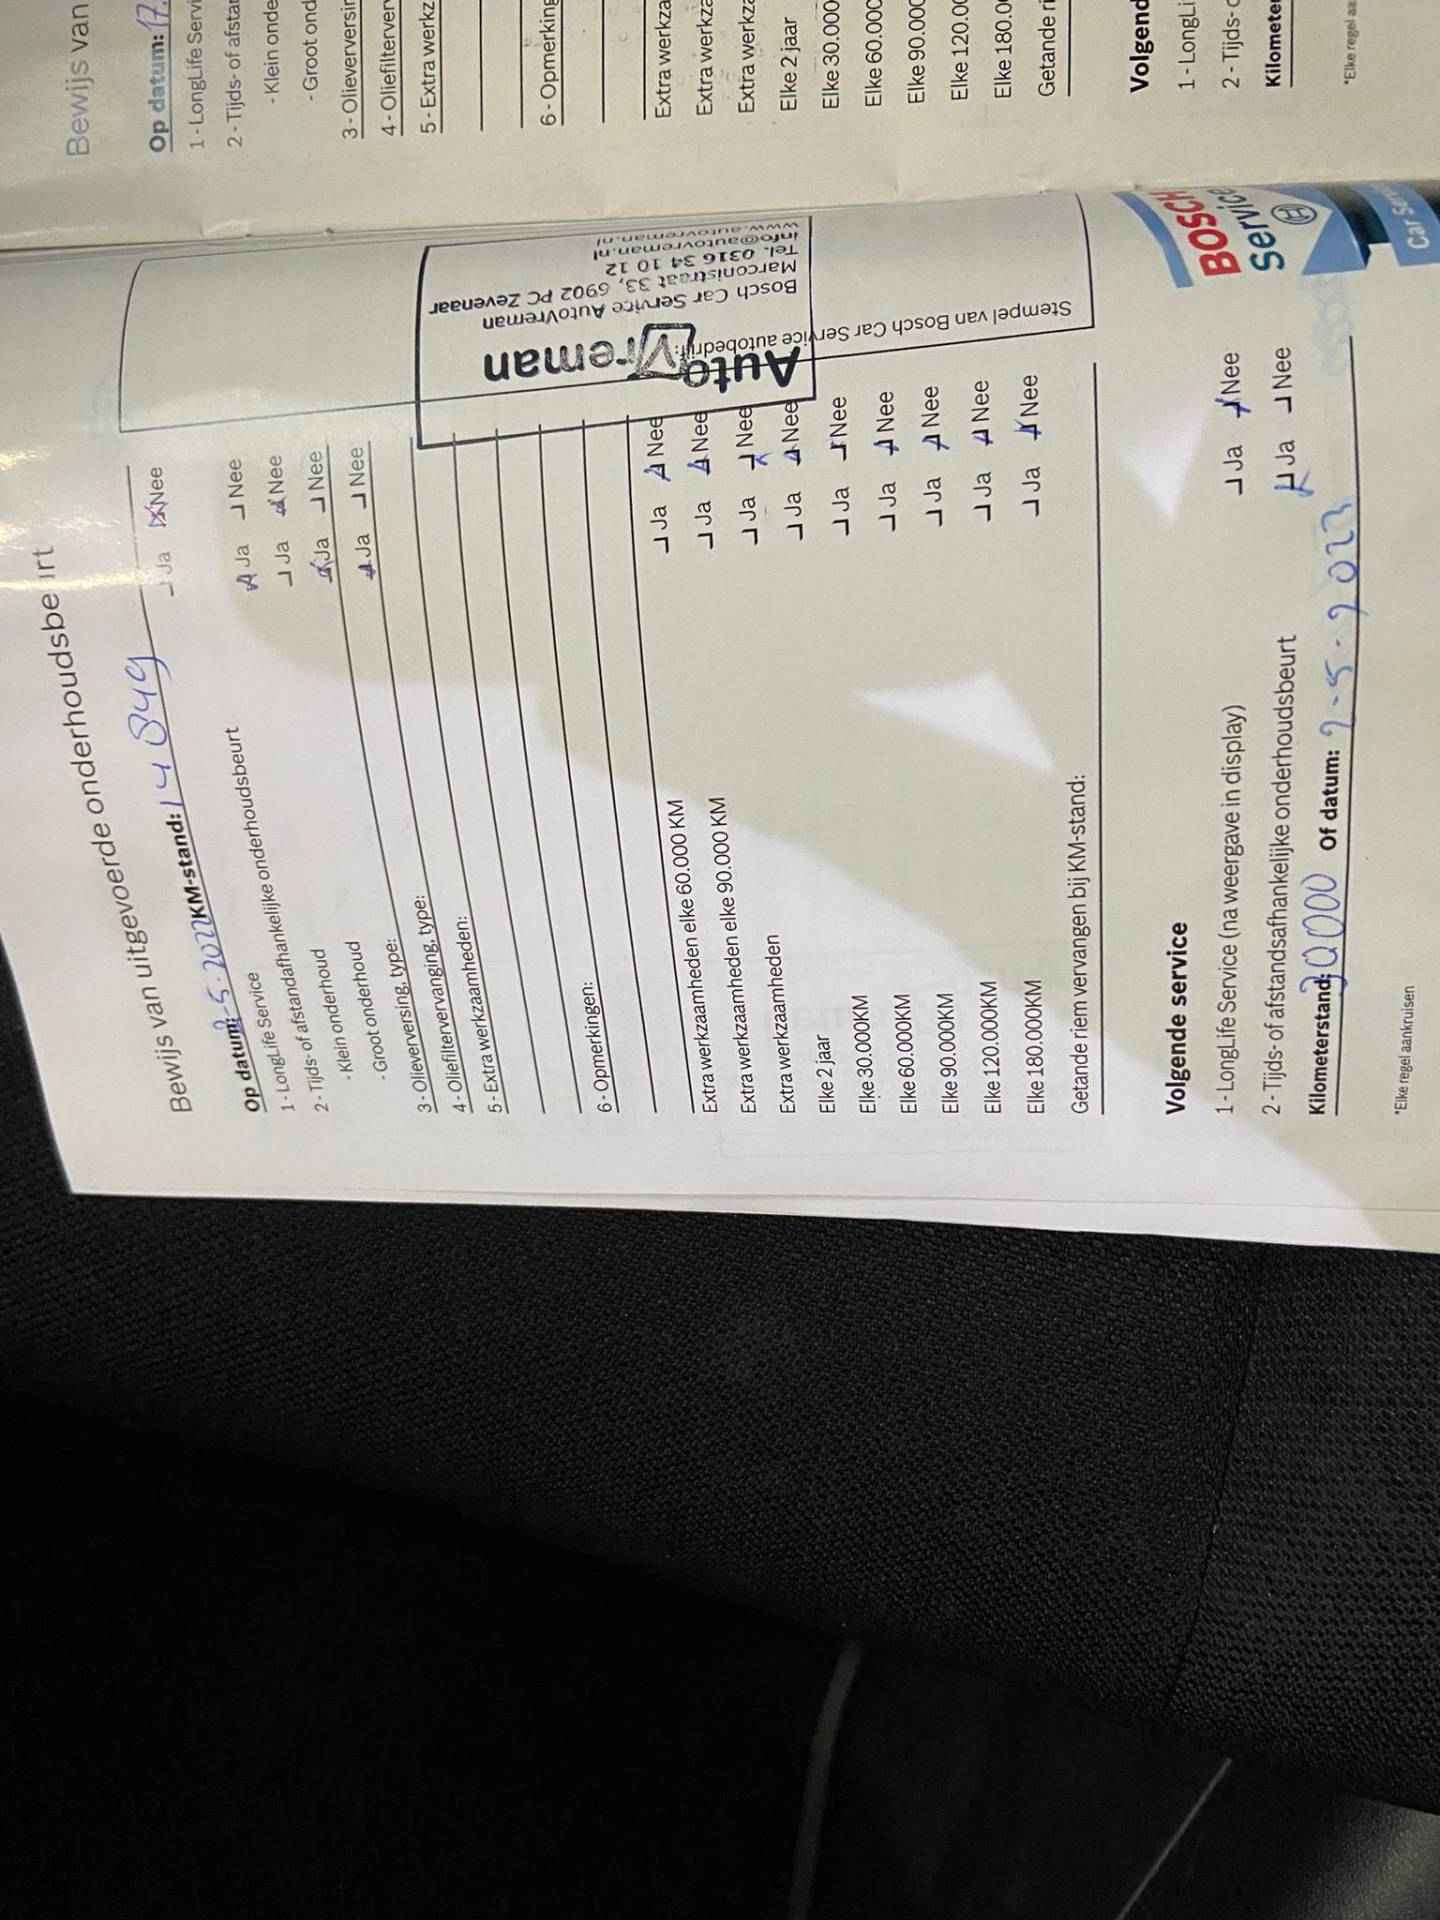 Bewijs van uitgevoerde onderhoudsbe rt
Bewijs van uitgevoerde onderhoudsbeurt
Op datum: 2-5-2022 KM-stand: 140849
1 - LongLife Service Ja Nee
2 - Tijds- of afstandafhankelijke onderhoudsbeurt Ja Nee
- Klein onderhoud Ja Nee
- Groot onderhoud Ja Nee
3 - Olieverversing, type: Ja Nee
4 - Oliefiltervervanging, type:
5 - Extra werkzaamheden:
6 - Opmerkingen:
Extra werkzaamheden elke 60.000 KM Ja Nee
Extra werkzaamheden elke 90.000 KM Ja Nee
Extra werkzaamheden Ja Nee
Elke 2 jaar Ja Nee
Elke 30.000KM Ja Nee
Elke 60.000KM Ja Nee
Elke 90.000KM Ja Nee
Elke 120.000KM Ja Nee
Elke 180.000KM Ja Nee
Getande riem vervangen bij KM-stand:
Auto Vreman
Bosch Car Service AutoVreman
Marconistraat 33, 6902 PC Zevenaar
Tel. 0316 34 10 12
info@autovreman.nl
www.autovreman.nl
Stempel van Bosch Car Service autobedrijf:
Volgende service
1 - LongLife Service (na weergave in display) Ja Nee
2 - Tijds- of afstandsafhankelijke onderhoudsbeurt Ja Nee
Kilometerstand: Of datum: 2-5-2023
*Elke regel aankruisen
BOSCH
Service
Car Serv
Bewijs van
Op datum: 17.
1 - LongLife Servi
2 - Tijds- of afstan
- Klein onde
- Groot ond
3 - Olieverversin
4 - Oliefilterver
5 - Extra werkz
6 - Opmerking
Extra werkza
Extra werkza
Extra werkza
Elke 2 jaar
Elke 30.000
Elke 60.000
Elke 90.000
Elke 120.0
Elke 180.0
Getande ri
Volgend
1 - LongLi
2 - Tijds- o
Kilometer
*Elke regel aa